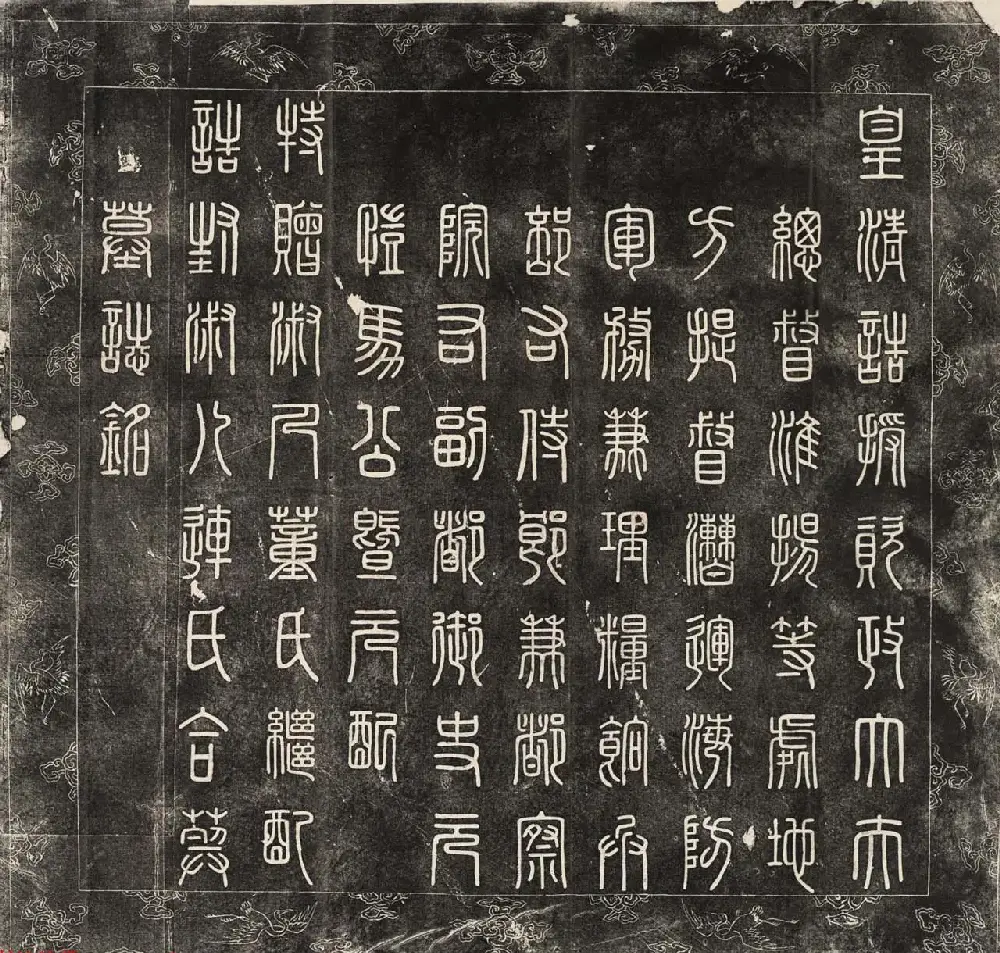 皇清誥授資政大夫
總督淮揚等處地
方提督漕運海防
軍務兼理糧餉兵
部右侍郎兼都察
院右副都御史元
愷馬公暨元配
特贈淑人董氏繼配
誥封淑人連氏合葬
墓誌銘